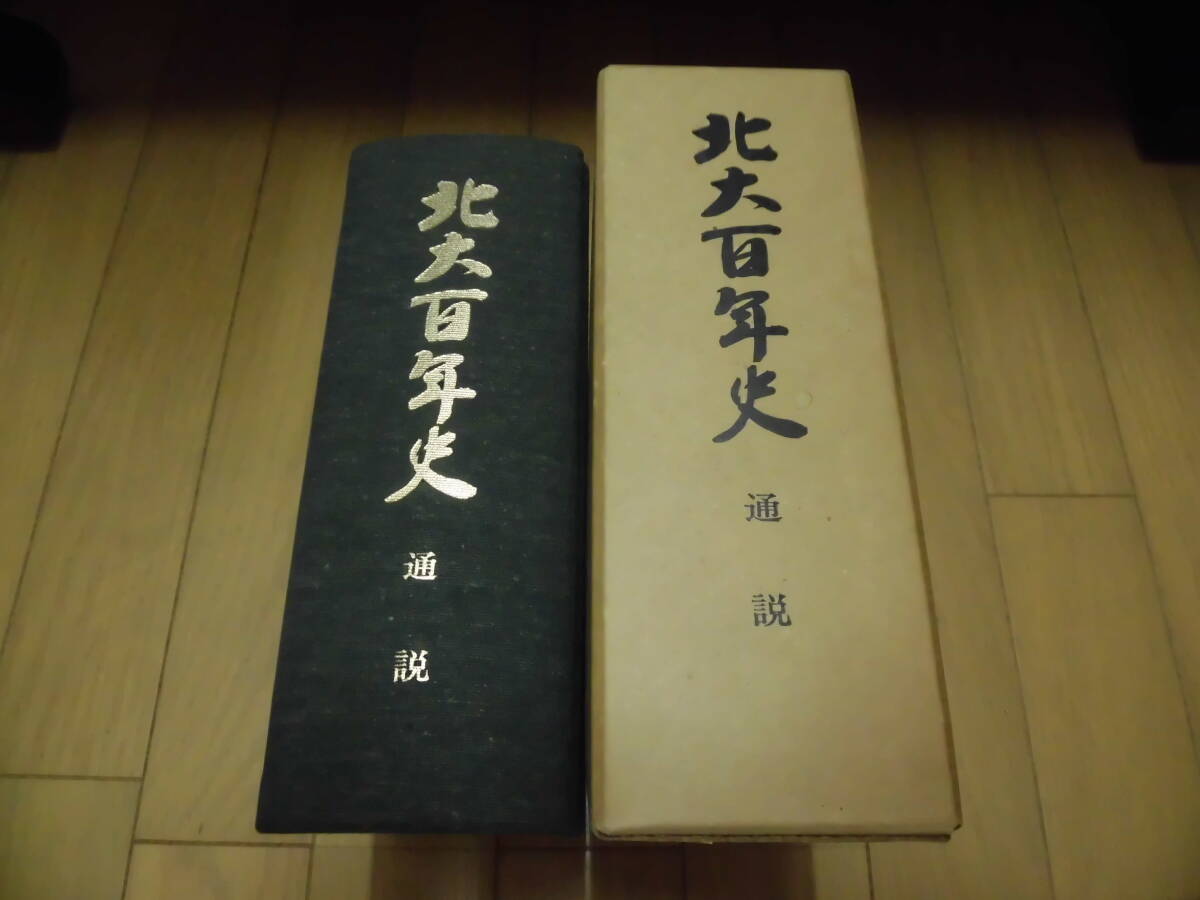 北大百年史
通説
北大百年史
通説